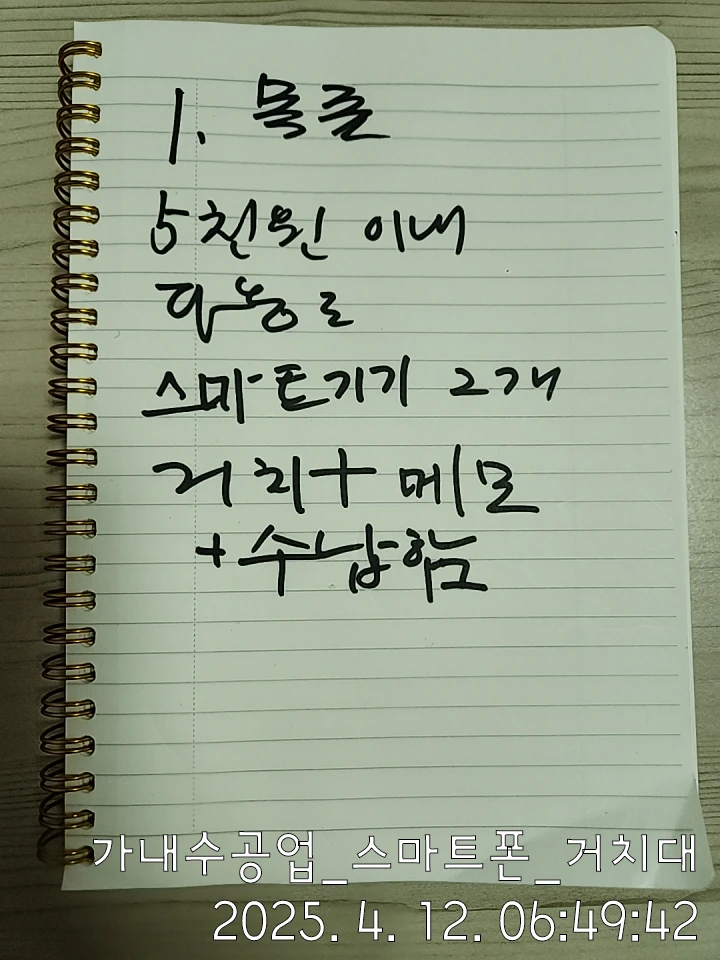 1. 목줄
5천원 이내
다용도
스마트기기 2개
거치+메모
+수납함
가내수공업_스마트폰_거치대
2025. 4. 12. 06:49:42